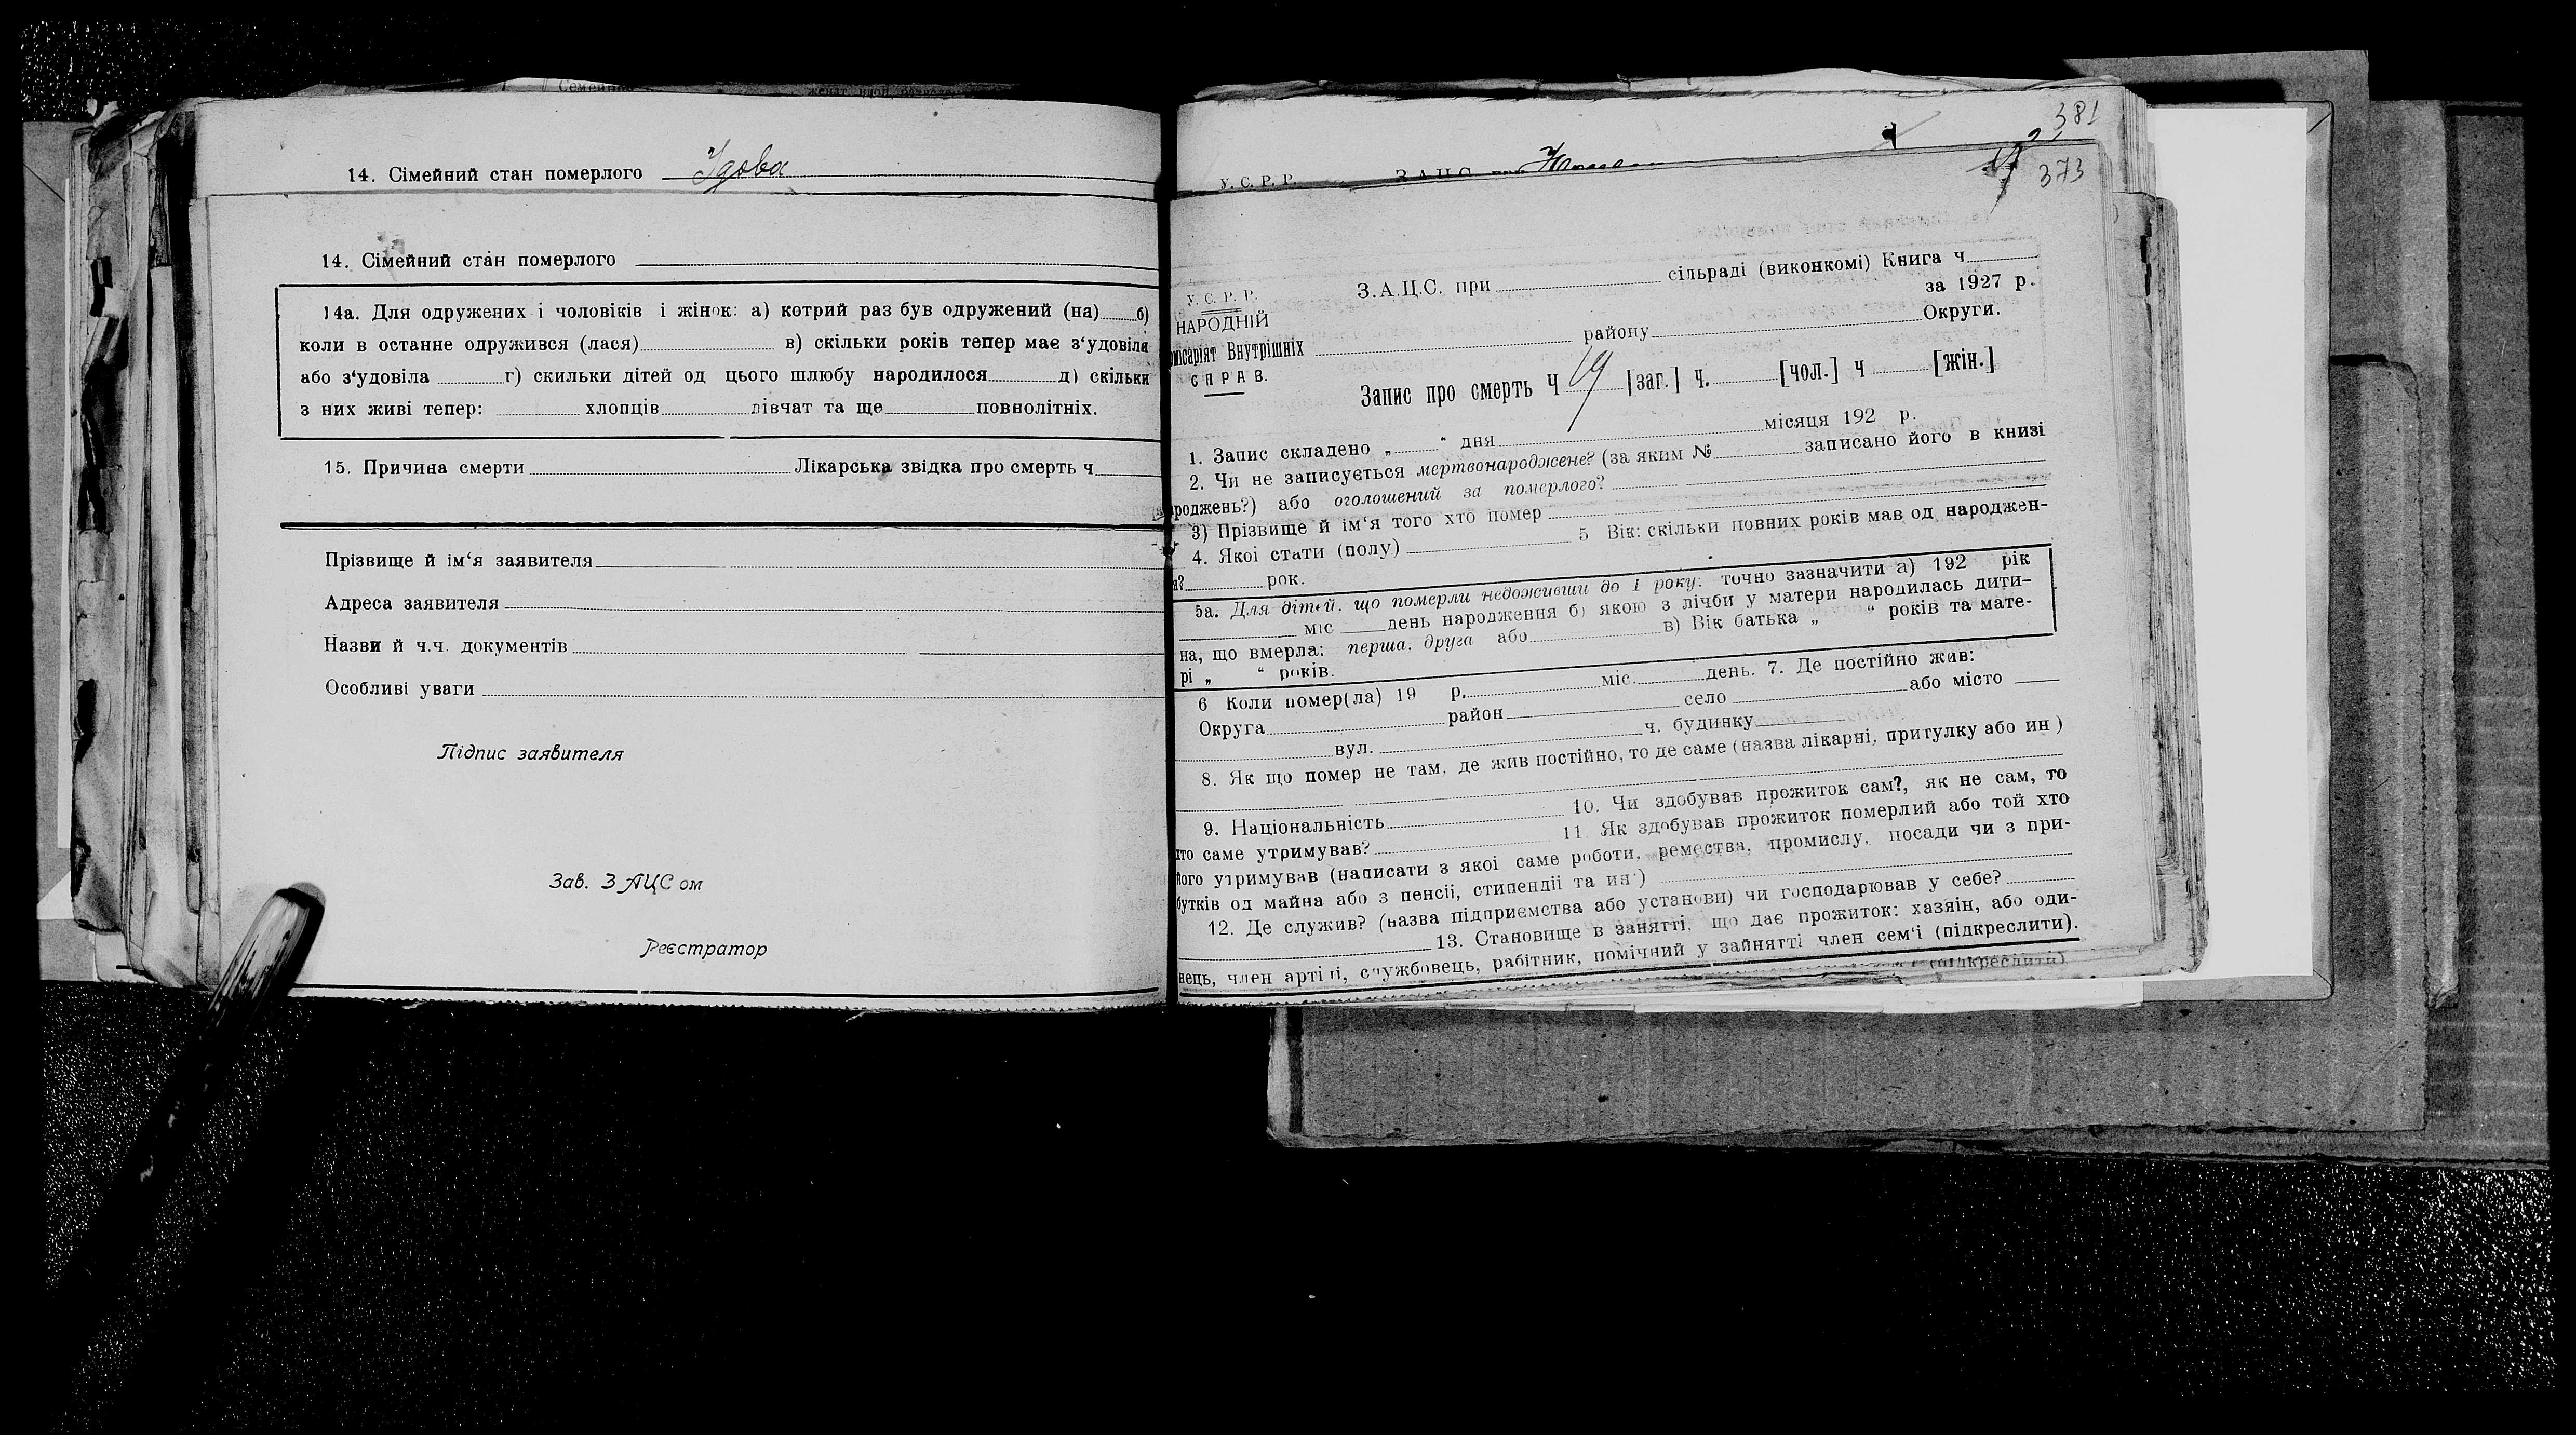 14. Сімейний стан померлого Удова
14. Сімейний стан померлого
14а. Для одружених і чоловіків і жінок: а) котрий раз був одружений (на) б)
коли в останне одружився (лася) в) скільки років тепер має з‘удовіла
або з‘удовіла г) скильки дітей од цього шлюбу народилося д) скільки
з них живі тепер: хлопців дівчат та ще повнолітніх.
15. Причина смерти Лікарська звідка про смерть ч
Прізвище й ім‘я заявителя
Адреса заявителя
Назви й ч.ч. документів
Особливі уваги
Підпис заявителя
Зав. ЗАЦС ом
Реєстратор
381
У. С. Р. Р. З.А.Ц.С. при
373
З.А.Ц.С. при сільраді (виконкомі) Книга ч
У. С. Р. Р. за 1927 р.
НАРОДНІЙ
району Округи.
Внутрішніх
СПРАВ.
Запис про смерть Ч 19 [заг.] ч. [чол.] ч [жін.]
1. Запис складено „ “ дня місяця 192 р.
2. Чи не записується мертвонароджене? (за яким № записано його в книзі
роджень?) або оголошений за померлого?
3) Прізвище й ім‘я того хто помер
4. Якої стати (полу) 5 Вік: скільки повних років мав од народжен-
я? рок.
5а. Для дітей, що померли недоживши до 1 року: точно зазначити а) 192 рік
міс день народження б) якою з лічби у матери народилась дити-
на, що вмерла: перша, друга або в) Вік батька „ “ років та мате-
рі „ “ років.
6 Коли помер(ла) 19 р. міс. день. 7. Де постійно жив:
Округа район село або місто
вул. ч. будинку
8. Як що помер не там, де жив постійно, то де саме (назва лікарні, притулку або ин )
9. Національність 10. Чи здобував прожиток сам?, як не сам, то
хто саме утримував? 11. Як здобував прожиток померлий або той хто
його утримував (написати з якої саме роботи, ремества, промислу, посади чи з при-
бутків од майна або з пенсії, стипендії та ин )
12. Де служив? (назва підприємства або установи) чи господарював у себе?
13. Становище в занятті, що дає прожиток: хазяїн, або оди-
нець, член артілі, службовець, рабітник, помічний у зайнятті член сем‘ї (підкреслити).
(підкреслити)